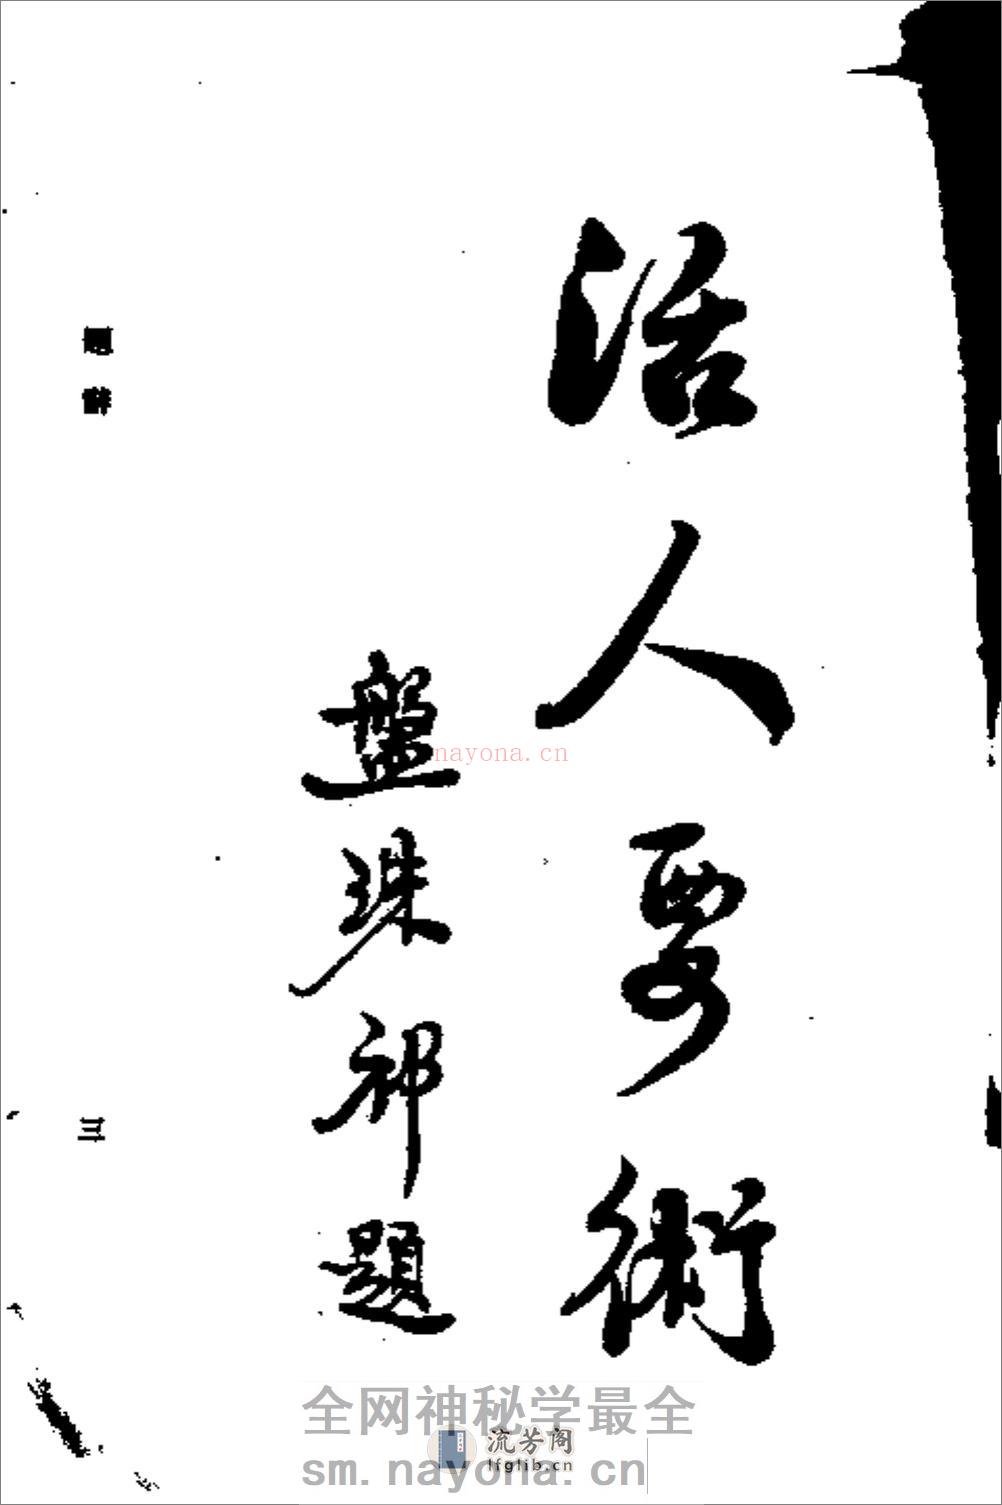 活人要術
盤珠祁題
題辭
三
nayona.cn
全网神秘学最全
流芳阁
lfglib.cn
sm.nayona.cn